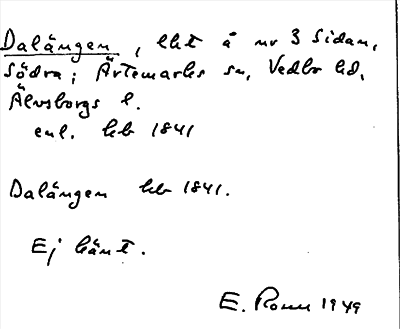 Dalängen, lht å nr 3 Sidan,
Södra; Ärtemarks sn, Vedbo hd,
Älvsborgs l.
enl. hb 1841
Dalängen hb 1841.
Ej känt.
E. Ronn 1949